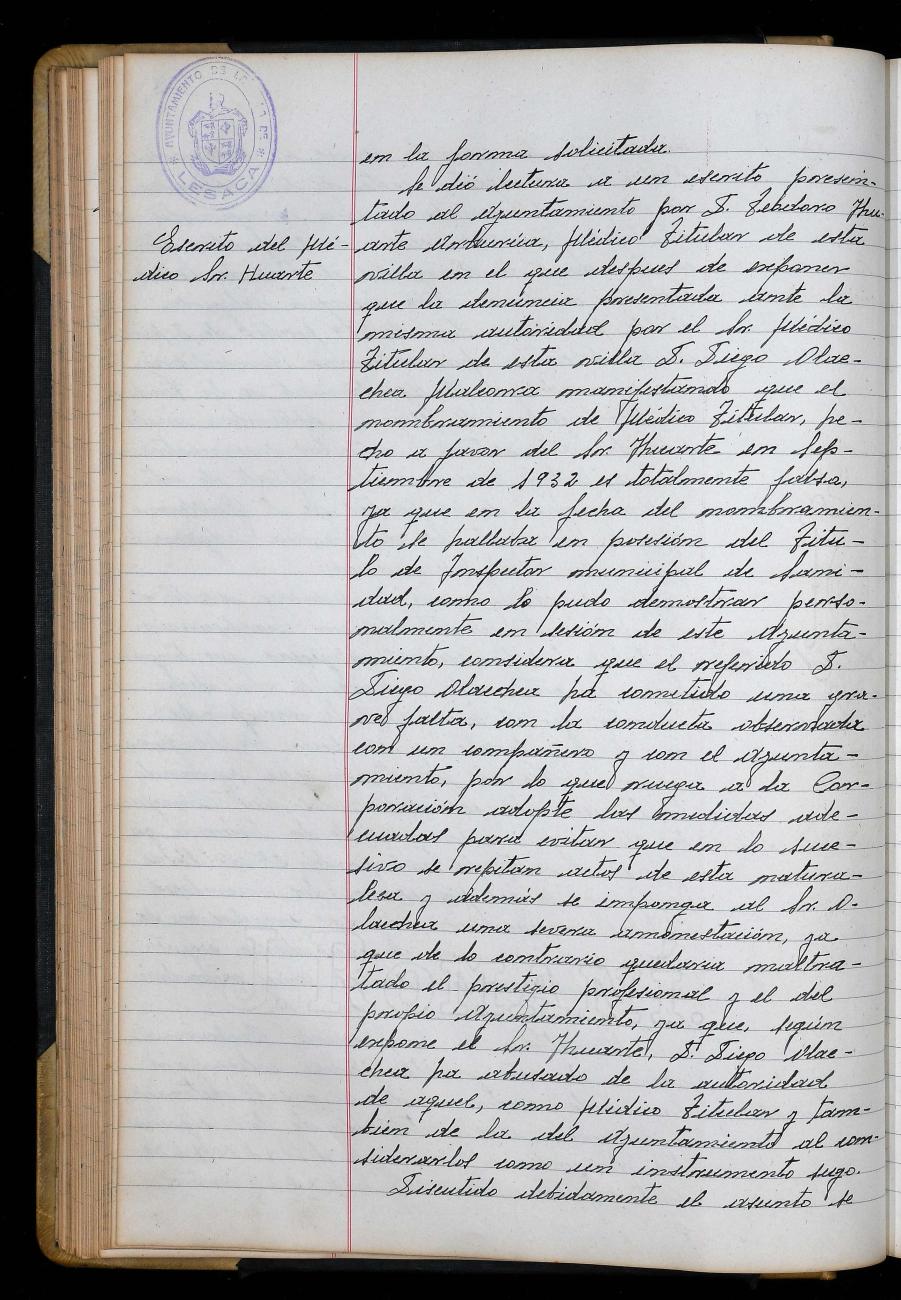 AYUNTAMIENTO DE
LESACA
en la forma solicitada.
Se dió lectura a un escrito presen-
tado al Ayuntamiento por D. Teodoro Hu-
Escrito del Mé-
dico Sr. Huarte
arte Médico Titular de esta
villa en el que despues de exponer
que la denuncia presentada ante la
misma autoridad por el Sr. Médico
Titular de esta villa D. Diego Olae-
chea manifestando que el
nombramiento de Médico Titular, he-
cho a favor del Sr. Huarte en Sep-
tiembre de 1932 es totalmente falsa,
ya que en la fecha del nombramien-
to se hallaba en posesión del Títu-
lo de Inspector municipal de Sani-
dad, como lo pudo demostrar perso-
nalmente en sesión de este Ayunta-
miento, considera que el referido D.
Diego Olaechea ha cometido una gra-
ve falta, con la conducta observada
con un compañero y con el Ayunta-
miento, por lo que ruega a la Cor-
poración adopte las medidas ade-
cuadas para evitar que en lo suce-
sivo se repitan actos de esta natura-
leza y además se imponga al Sr. O-
laechea una severa amonestación, ya
que de lo contrario quedaria maltra-
tado el prestigio profesional y el del
propio Ayuntamiento, ya que, según
expone el Sr. Huarte, D. Diego Olae-
chea ha abusado de la autoridad
de aquel, como Médico Titular y tam-
bien de la del Ayuntamiento al con-
siderarlos como un instrumento suyo.
Discutido debidamente el asunto se